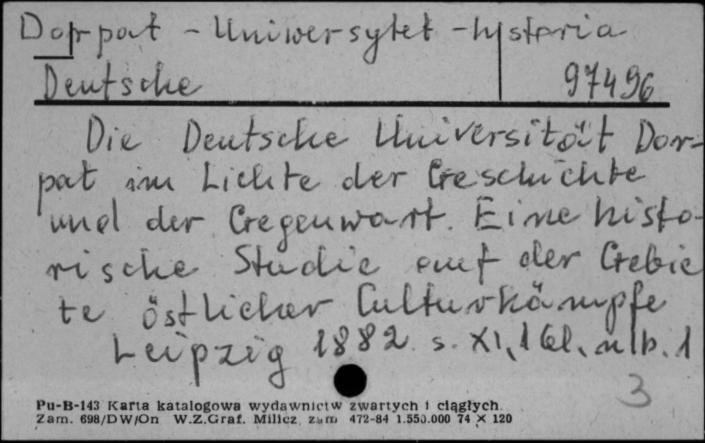 Dorpat - Uniwersytet - hystoria
Deutsche 97496
Die Deutsche Universität Dor-
pat im Lichte der Geschichte
und der Gegenwart. Eine histo-
rische Studie auf der Gebie
te östlicher Culturkämpfe
Leipzig 1882 s. XI, 161, nlb. 1
3
Pu-B-143 Karta katalogowa wydawnictw zwartych i ciągłych.
Zam. 698/DW/On W.Z.Graf. Milicz, zam 472-84 1.550.000 74 × 120